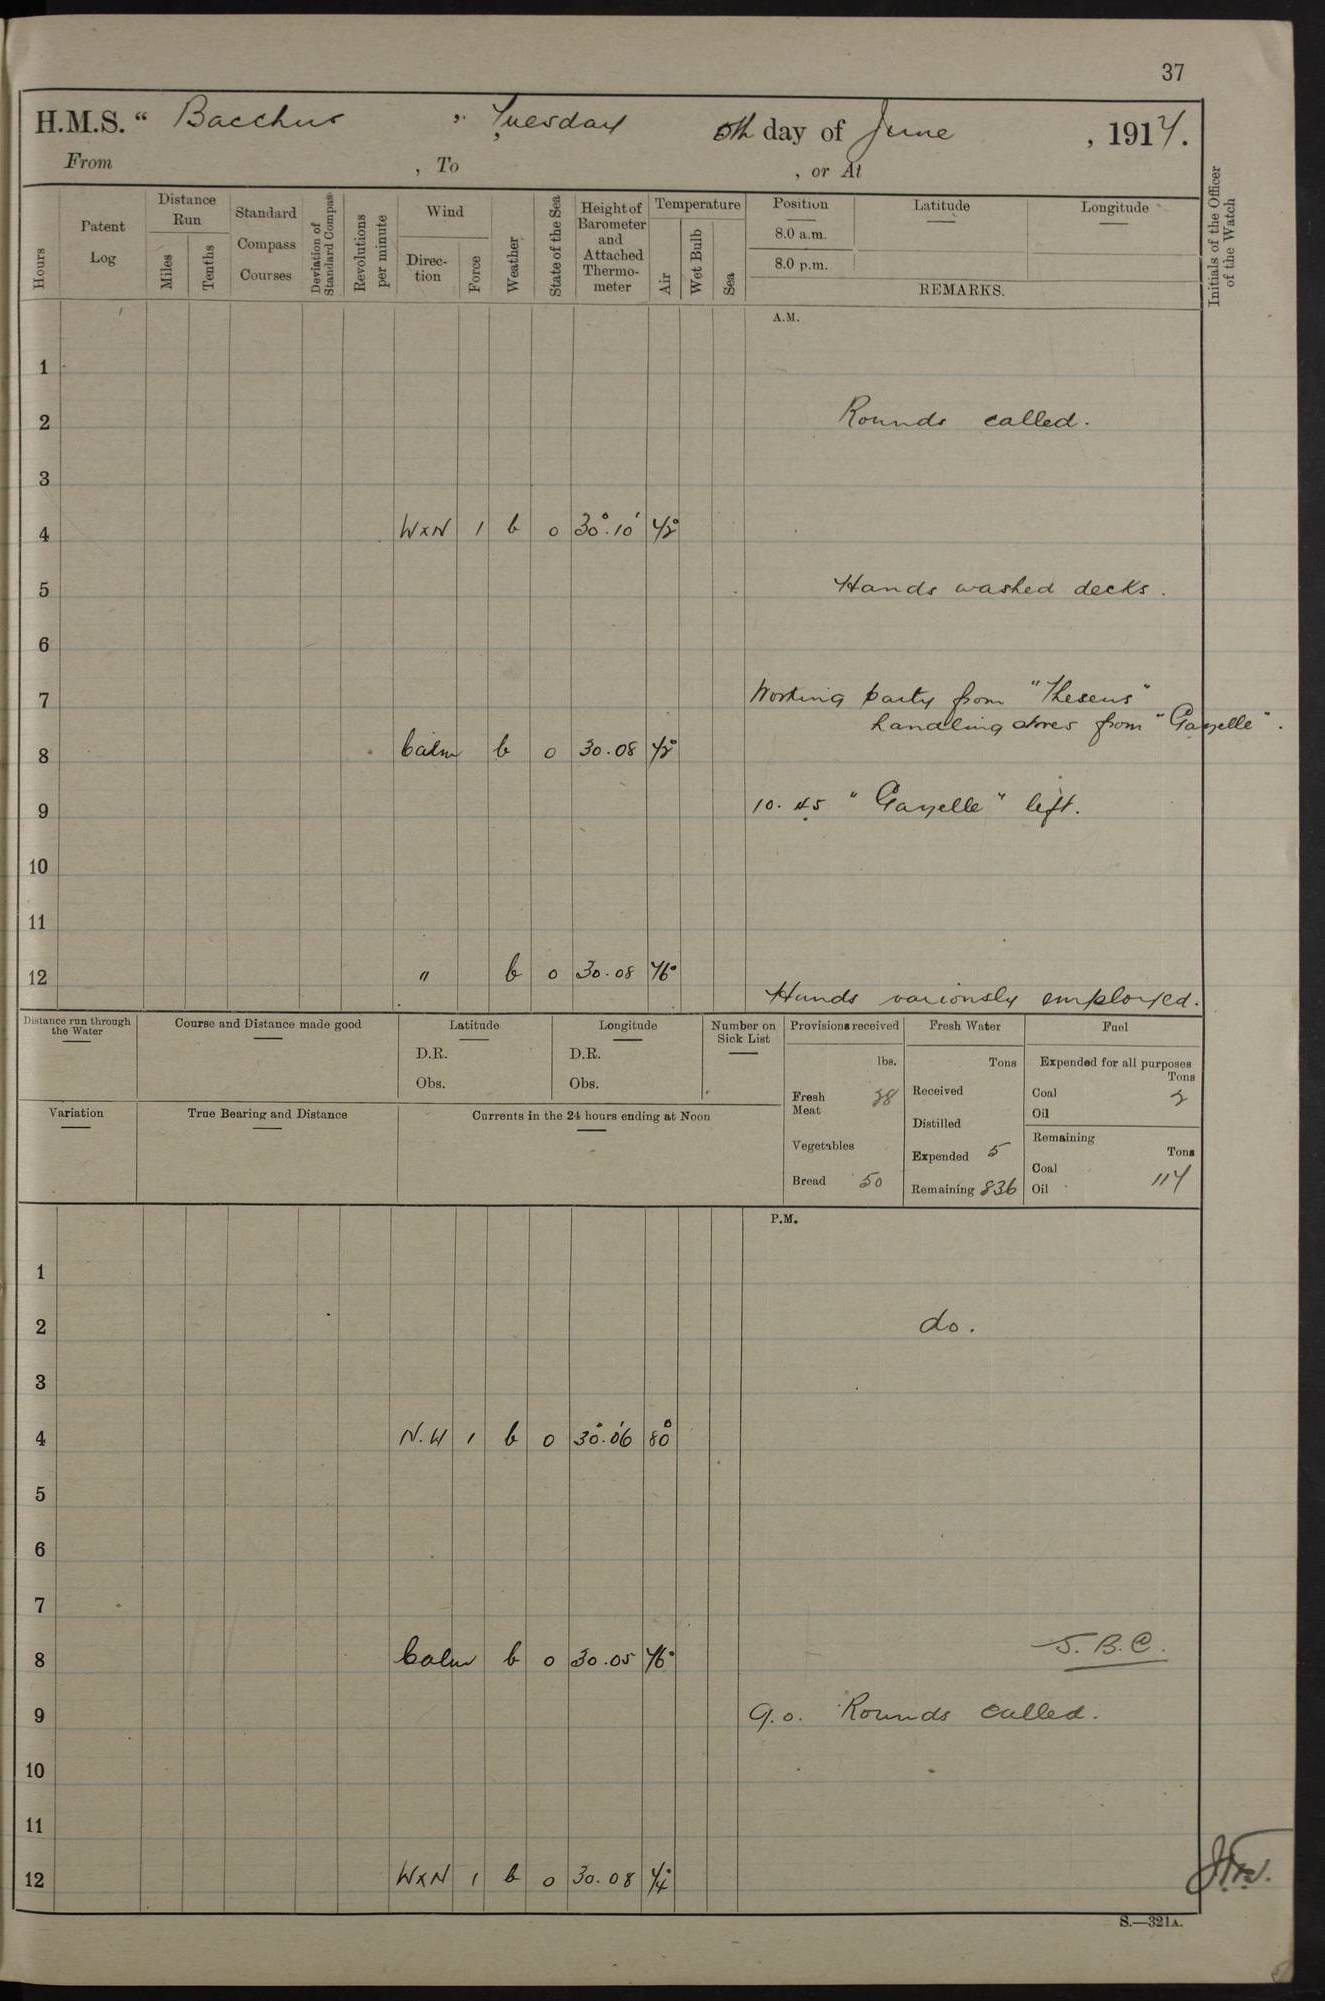 37
H.M.S. “ Bacchus ” Tuesday 5th day of June , 1917.
From , To , or At
Hours
Patent Log
Distance Run
Miles
Tenths
Standard Compass Courses
Deviation of Standard Compass
Revolutions per minute
Wind
Direc-tion
Force
Weather
State of the Sea
Height of Barometer and Attached Thermo-meter
Temperature
Air
Wet Bulb
Sea
Position
8.0 a.m.
8.0 p.m.
Latitude
Longitude
REMARKS.
Initials of the Officer of the Watch
A.M.
1
2 Rounds called.
3
4 WxN 1 b 0 30°.10' 72°
5 Hands washed decks.
6
7 Working party from "Theseus"
handling stores from "Gazelle".
8 Calm b 0 30.08 72°
9 10.45 "Gazelle" left.
10
11
12 " b 0 30.08 76°
Hands variously employed.
Distance run through the Water
Course and Distance made good
Latitude
D.R.
Obs.
Longitude
D.R.
Obs.
Number on Sick List
Provisions received
lbs.
Fresh Meat
Vegetables
Bread 50
Fresh Water
Tons
Received
Distilled
Expended 5
Remaining 836
Fuel
Expended for all purposes
Tons
Coal 2
Oil
Remaining
Tons
Coal 117
Oil
Variation
True Bearing and Distance
Currents in the 24 hours ending at Noon
P.M.
1
2 do.
3
4 N.W 1 b 0 30°.06' 80°
5
6
7
8 Calm b 0 30.05 76° J.B.C.
9 9.0. Rounds called.
10
11
12 WxN 1 b 0 30.08 74°
S.—321A.